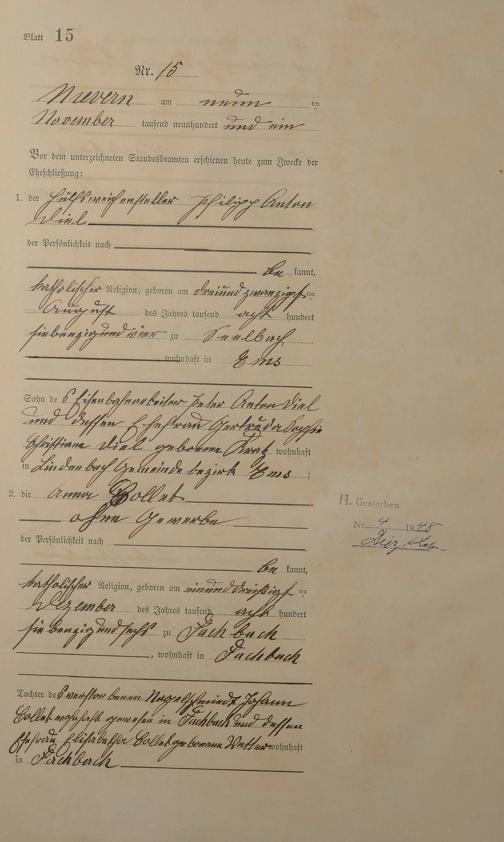 Blatt 15
Nr. 15
Nievern am neun ten
November tausend neunhundert und ein
Vor dem unterzeichneten Standesbeamten erschienen heute zum Zwecke der
Eheschließung:
1. der Hülfsweichensteller Philipp Anton
Diel
der Persönlichkeit nach
be kannt,
katholischer Religion, geboren am dreiundzwanzigsten
August des Jahres tausend acht hundert
siebenzigundvier zu Seelbach
, wohnhaft in Ems
Sohn des Eisenbahnarbeiter Peter Anton Diel
und dessen Ehefrau Gertruda Sophie
Christiane Diel geborene wohnhaft
in Lindenbach Gemeindebezirk Ems ;
2. die Anna Collet
ohne Gewerbe
der Persönlichkeit nach
be kannt,
katholischer Religion, geboren am einunddreißigsten
Dezember des Jahres tausend acht hundert
siebenzigundsechs zu Fachbach
, wohnhaft in Fachbach
Tochter des verstorbenen Nagelschmiedt Johann
Collet wohnhaft gewesen in Fachbach und dessen
Ehefrau Elisabetha Collet geborene wohnhaft
in Fachbach
H. Gestorben
Nr. 4 1948
Diez